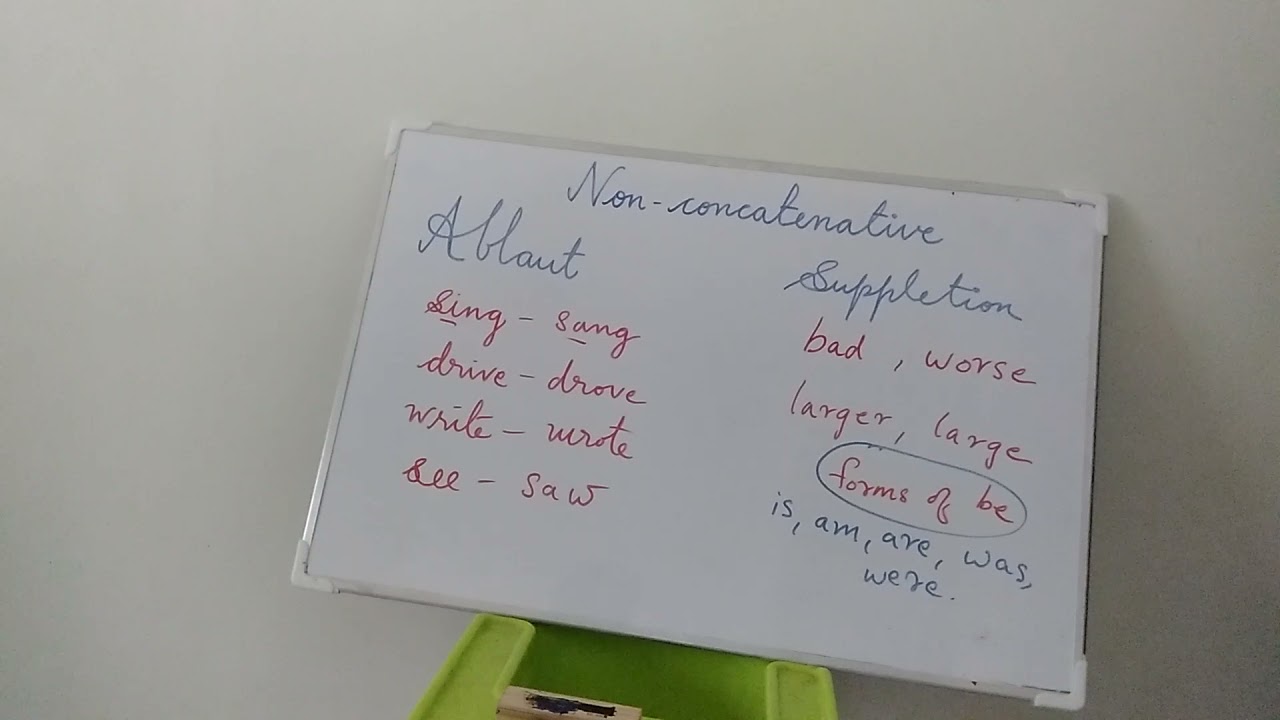 Non-concatenative
Ablaut
sing - sang
drive - drove
write - wrote
see - saw
Suppletion
bad , worse
larger, large
forms of be
is, am, are, was,
were.